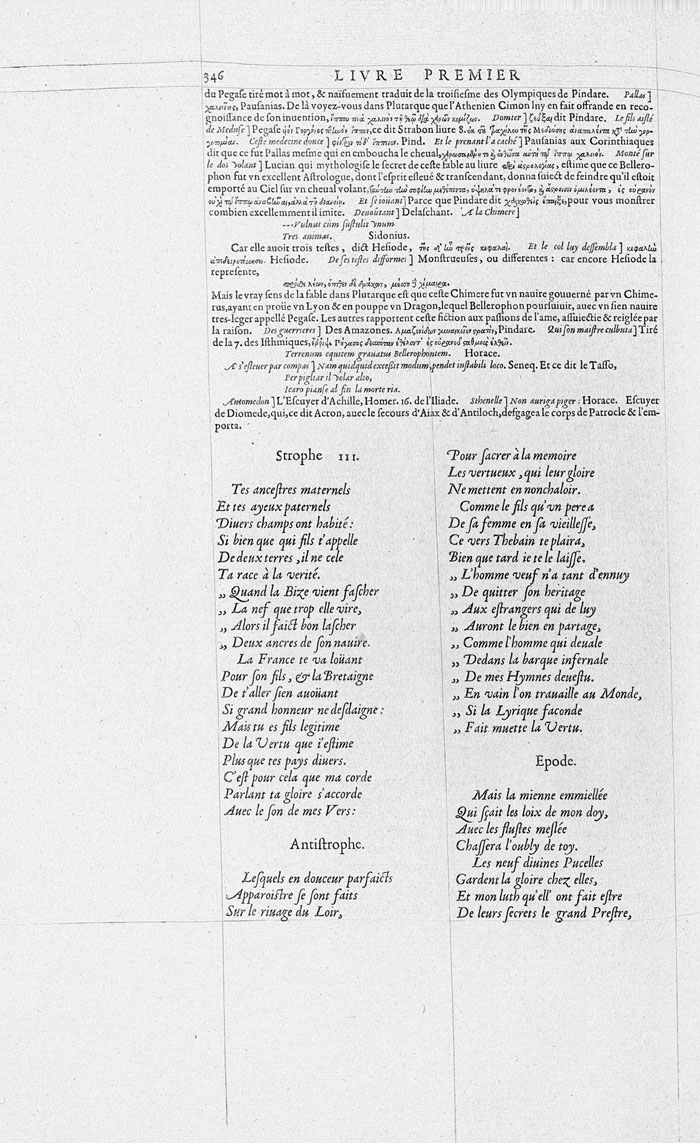 346 LIVRE PREMIER
du Pegase tiré mot à mot, & naïfuement traduit de la troisiesme des Olympiques de Pindare. Pallas]
Pausanias. De là voyez-vous dans Plutarque que l'Athenien Cimon luy en fait offrande en reco-
gnoissance de son inuention, Domter] Pindare. Le fils aislé
de Meduse] Pegase ce dit Strabon liure 8.
Ceste medecine donce] Pind. Et le prenant l'a caché] Pausanias aux Corinthiaques
dit que ce fut Pallas mesme qui en emboucha le cheval, Monté sur
le dos volant] Lucian qui mythologise le secret de ceste fable au liure estime que ce Bellero-
phon fut vn excellent Astrologue, dont l'esprit esleué & transcendant, donna suiect de feindre qu'il estoit
emporté au Ciel sur vn cheual volant,
Et se ioüant] Parce que Pindare dit pour vous monstrer
combien excellemment il imite. Denoütant] Delaschant. A la Chimere]
---Vulnus cùm sustulit vnum
Tres animas. Sidonius.
Car elle auoit trois testes, dict Hesiode, Et le col luy dessembla]
Hesiode. De ses testes difformes] Monstrueuses, ou differentes: car encore Hesiode la
represente,
Mais le vray sens de la fable dans Plutarque est que ceste Chimere fut vn nauire gouuerné par vn Chime-
rus, ayant en proüe vn Lyon & en pouppe vn Dragon, lequel Bellerophon poursuiuit, auec vn sien nauire
tres-leger appellé Pegase. Les autres rapportent ceste fiction aux passions de l'ame, assuiectie & reiglée par
la raison. Des guerrieres] Des Amazones. Pindare. Qui son maistre culbuta] Tiré
de la 7. des Isthmiques,
Terrenum equitem grauatus Bellerophontem. Horace.
A s'esleuer par compas] Nam quidquid excessit modum, pendet instabili loco. Seneq. Et ce dit le Tasso,
Per pigliar il volar alto,
Icaro pianse al fin la morte ria.
Automedon] L'Escuyer d'Achille, Homer. 16. de l'Iliade. Sthenelle] Non auriga piger: Horace. Escuyer
de Diomede, qui, ce dit Acron, auec le secours d'Aiax & d'Antiloch, desgagea le corps de Patrocle & l'em-
porta.
Strophe III.
Tes ancestres maternels
Et tes ayeux paternels
Diuers champs ont habité:
Si bien que qui fils t'appelle
De deux terres, il ne cele
Ta race à la verité.
„ Quand la Bize vient fascher
„ La nef que trop elle vire,
„ Alors il faict bon lascher
„ Deux ancres de son nauire.
La France te va loüant
Pour son fils, & la Bretaigne
De t'aller sien auoüant
Si grand honneur ne desdaigne:
Mais tu es fils legitime
De la Vertu que i'estime
Plus que tes pays diuers.
C'est pour cela que ma corde
Parlant ta gloire s'accorde
Auec le son de mes Vers:
Antistrophe.
Lesquels en douceur parfaicts
Apparoistre se sont faits
Sur le riuage du Loir,
Pour sacrer à la memoire
Les vertueux, qui leur gloire
Ne mettent en nonchaloir.
Comme le fils qu'vn pere a
De sa femme en sa vieillesse,
Ce vers Thebain te plaira,
Bien que tard ie te le laisse.
„ L'homme veuf n'a tant d'ennuy
„ De quitter son heritage
„ Aux estrangers qui de luy
„ Auront le bien en partage,
„ Comme l'homme qui deuale
„ Dedans la barque infernale
„ De mes Hymnes deuestu.
„ En vain l'on trauaille au Monde,
„ Si la Lyrique faconde
„ Fait muette la Vertu.
Epode.
Mais la mienne emmiellée
Qui sçait les loix de mon doy,
Auec les flustes meslée
Chassera l'oubly de toy.
Les neuf diuines Pucelles
Gardent ta gloire chez elles,
Et mon luth qu'ell' ont fait estre
De leurs secrets le grand Prestre,